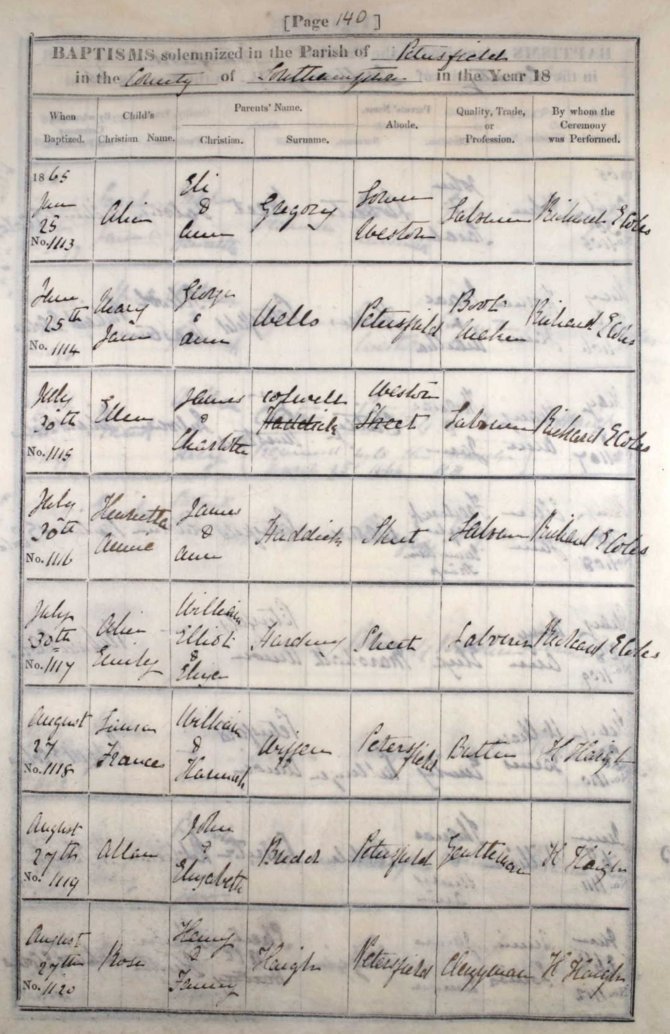 [Page 140]
BAPTISMS solemnized in the Parish of Petersfield
in the County of Southampton in the Year 18
When Baptized. Child's Christian Name. Parents' Name. Christian. Surname. Abode. Quality, Trade, or Profession. By whom the Ceremony was Performed.
1865 June 25 No. 1113 Alice Eli & Ann Gregory Lower Weston Labourer Richard E Coles
June 25th No. 1114 Mary Jane George & Ann Wells Petersfield Boot Maker Richard E Coles
July 30th No. 1115 Ellen James & Charlotte Haddick Weston Sheet Labourer Richard E Coles
July 30th No. 1116 Henrietta Annie James & Ann Haddick Sheet Labourer Richard E Coles
July 30th No. 1117 Alice Emily William Elliot & Eliza Harding Sheet Labourer Richard E Coles
August 27 No. 1118 Frances William & Hannah Petersfield H Haigh
August 27th No. 1119 Allan John & Elizabeth Petersfield Gentleman H Haigh
August 27th No. 1120 Rose Henry & Fanny Haigh Petersfield Clergyman H Haigh